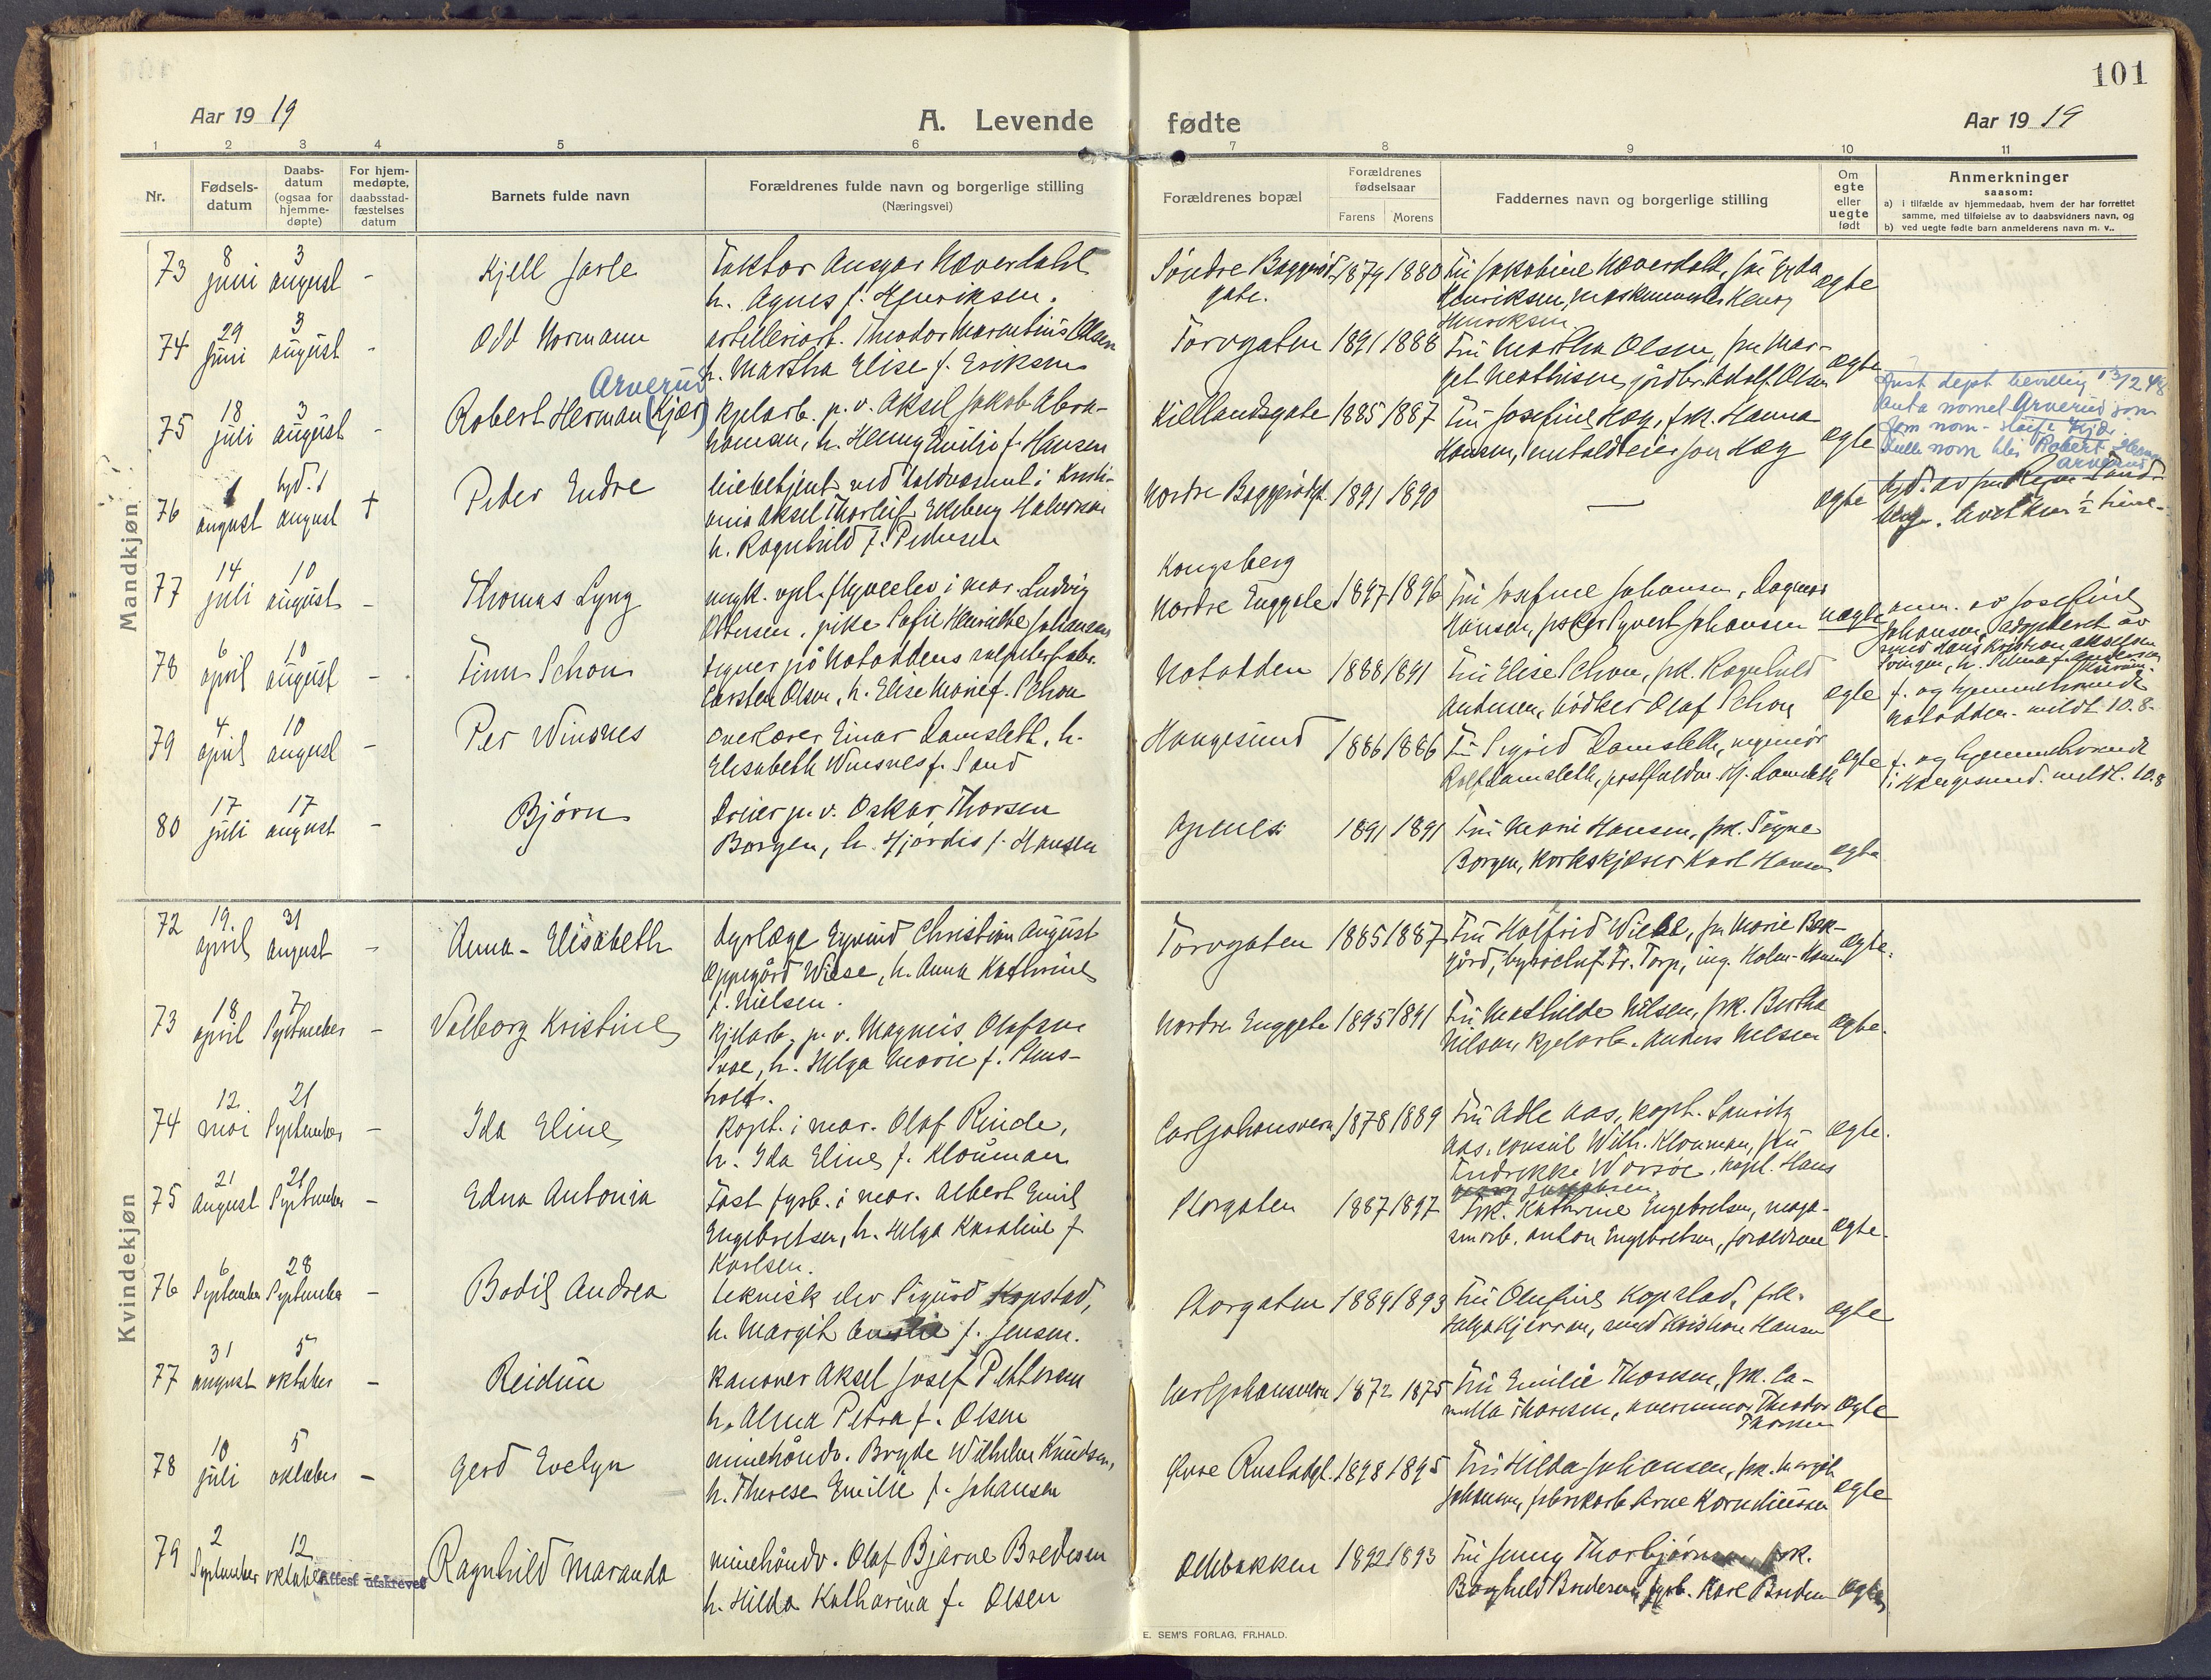 101
Aar 19 19
A. Levende fødte
Aar 19 19
1 2 3 4 5 6 7 8 9 10 11
Nr.
Fødsels-
datum
Daabs-
datum
(ogsaa for
hjemme-
døpte)
For hjem-
medøpte,
daabsstad-
fæstelses
datum
Barnets fulde navn
Forældrenes fulde navn og borgerlige stilling
(Næringsvei)
Forældrenes bopæl
Forældrenes
fødselsaar
Farens Morens
Faddernes navn og borgerlige stilling
Om
egte
eller
uegte
født
Anmerkninger
saasom:
a) i tilfælde av hjemmedaab, hvem der har forrettet
samme, med tilføielse av to daabsvidners navn, og
b) ved uegte fødte barn anmelderens navn m. v..
Mandkjøn
73 8 juni 3 august - Kjell Jarle
Faktor Ansgar Næverdahl
h. Agnes f. Henriksen.
Søndre Baggerød-
gate. 1879 1880
Fru Jakobine Næverdahl, frk Gyda
Henriksen, maskinmester Henry
Henriksen
egte
74 29 juni 3 august - Odd Normann
artilleriarb. Theodor Marentius Olsen
h. Martha Elise f. Eriksen
Torvgaten 1891 1888
Fru Martha Olsen, fru Mar-
get Mathisen, jordbr. Adolf Olsen
egte
75 18 juli 3 august - Robert Herman (Kjær) Arverud
kjelarb. p. v. Aksel Jakob Abra-
hamsen, h. Henny Emilie f. Hansen
Kiellandsgate 1885 1887
Fru Josefine Hæg, frk. Hanna
Hansen,
egte
Just dept bevilling 13/2 48
anta navnet Arverud som
fam navn - sløife Kjær.
Fulle navn blir Robert Herman
Arverud
76 1 august hjd. 1 august † Peder Endre
ved toldvæsenet i Kristi-
ania Aksel Thorleif Ekeberg Halvorsen
h. Ragnhild f. Pedersen
Nordre Baggerødgt. 1891 1890
—
egte
hjd. av fru
Levet kun ½ time.
77 14 juli 10 august - Thomas Lyng
ugift. vpl. flyveelev i mar. Ludvig
Ottersen, pike Sofie Henriette Johansen
Kongsberg
Nordre Enggate 1897 1896
Fru Josefine Johansen, Dagmar
Hansen, fisker Syvert Johansen
uegte
anm. av Josefine
Johansen, adopteret av
svend Hans Kristian Akselsen
78 6 april 10 august - Finn Schou
Tegner på Notoddens salpeterfabr.
Carsten Olsen, h. Elise Marie f. Schou
Notodden 1888 1891
Fru Elise Schou, frk. Ragnhild
Andersen, bødker Olaf Schou
egte
f. og hjemmehørende
Notodden. meldt 10.8.
79 4 april 10 august - Per Winsnes
Overlærer Einar Damsleth, h.
Elisabeth Winsnes f. Sand
Haugesund 1886 1886
Fru Sigrid Damsleth, ingeniør
Rolf Damsleth, postfuldm. Hj. Damsleth
egte
f. og hjemmehørende
i Haugesund. meldt. 10.8
80 17 juli 17 august - Bjørn
Dreier p. v. Oskar Thorsen
Borgen, h. Hjørdis f. Hansen
Apenes 1891 1891
Fru Marie Hansen, frk. Signe
Borgen, korkskjærer Karl Hansen
egte
Kvindekjøn
72 19. april 31 august - Anna-Elisabeth
dyrlæge Eyvind Christian August
Oppegård Wiese, h. Anna Kathrine
f. Nielsen.
Torvgaten 1885 1887
Fru Halfrid Wiese, fru Marie Bek-
gård, byrochef Fr. Torp, ing. Holm-Hansen
egte.
73 18 april 7 September - Valborg Kristine
kjelarb. p. v. Magnus Olafsen
h. Helga Marie f. Plms-
holt.
Nordre Enggate 1895 1891
Fru Mathilde Nilsen, frk. Bertha
Nilsen, kjelarb. Anders Nilsen
egte.
74 12. mai 21 September - Ida Eline
kapt. i mar. Olaf Rinde,
h. Ida Eline f. Klouman
Carljohansvern 1878 1889
Fru Adle Aas, kapt. Lauritz
Aas, consul Wilh. Klouman, fru
Fredrikke kapt. Hans
egte.
75 21 august 21 September - Edna Antonia
Fast fyrb. i mar. Albert Emil
Engebretsen, h. Helga Karoline f
Karlsen.
Storgaten 1887 1897
Frk. Kathrine Engebretsen, maga-
sinarb. Anton Engebretsen, forældrene
egte.
76 6 September 28 September - Bodil Andrea
teknisk elev Sigurd Kopstad,
h. Margit f. Jensen.
Storgaten 1889 1893
Fru Olufine Kopstad, frk.
Helga Kjerran, svend Kristian Hansen
egte
77 31 august 5 oktober - Reidun
kanoner Aksel Josef Pettersen
h. Alma Petra f. Olsen
Carljohansvern 1872 1875
Fru Emilie Thoresen, frk. Ca-
milla Thoresen, Theodor
Thoresen
egte
78 10 juli 5 oktober - Gerd Evelyn
minehåndv. Bryde Wilhelm Knudsen,
h. Therese Emilie f. Johansen
Øvre Rustadgt. 1898 1895
Fru Hilda Johansen, frk. Margit
Johansen, fabrikarb Arne Korneliussen
egte
79 2 September 12 oktober Attest utskrevet Ragnhild Maranda
minehåndv. Olaf Bjarne Bredesen
h. Hilda Katharina f. Olsen
Oddbakken 1892 1893
Fru Jenny Thorbjørnsen frk.
Borghild Bredesen, fyrb. Kåre Bredesen
egte
E. SEM'S FORLAG, FR.HALD.